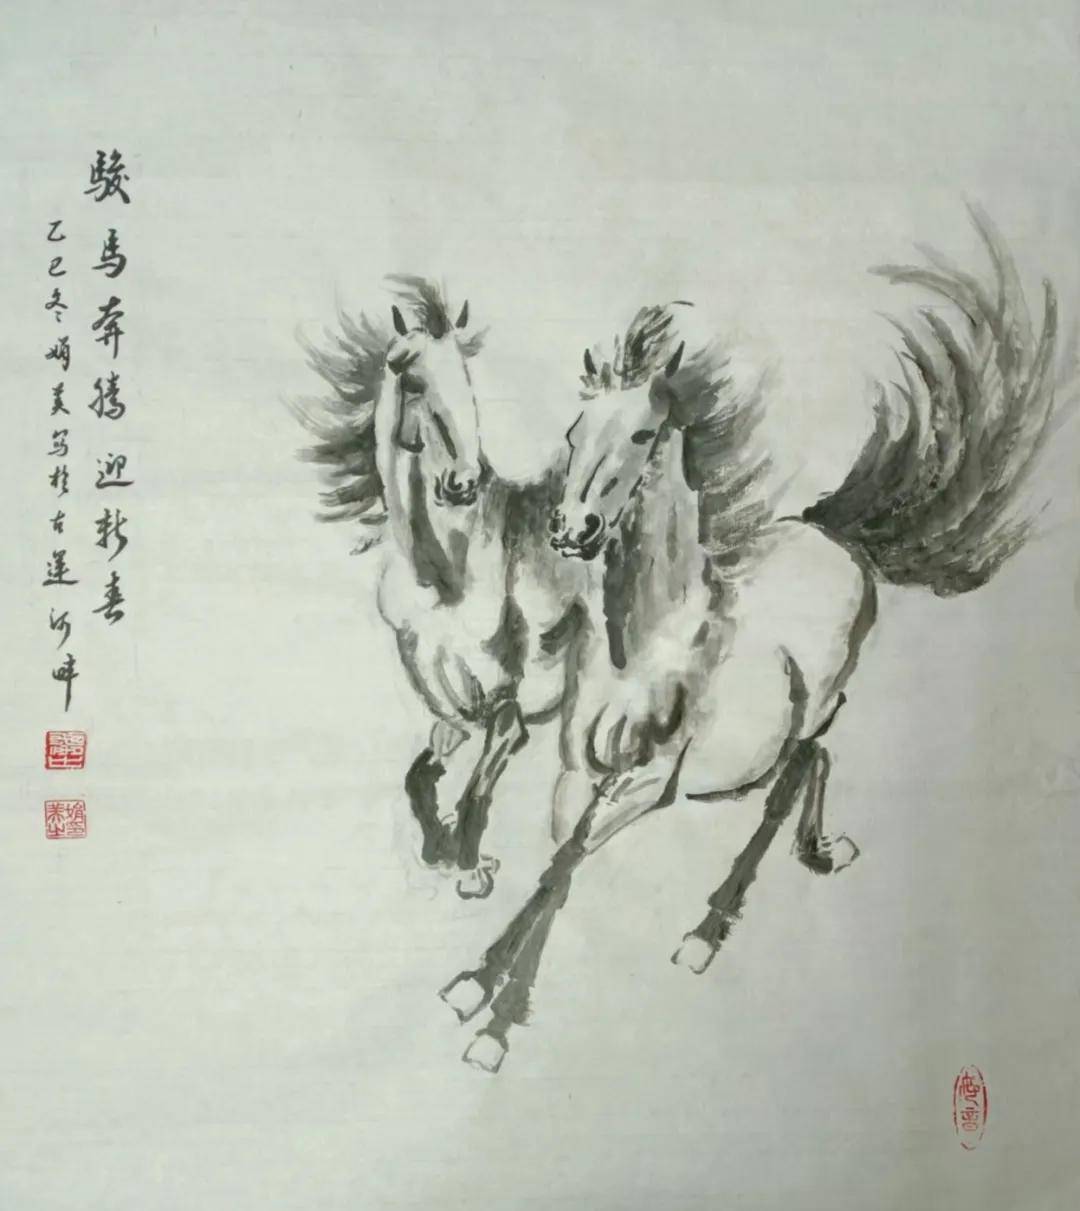 駿馬奔騰迎新春
乙巳冬娟美写於古運河畔